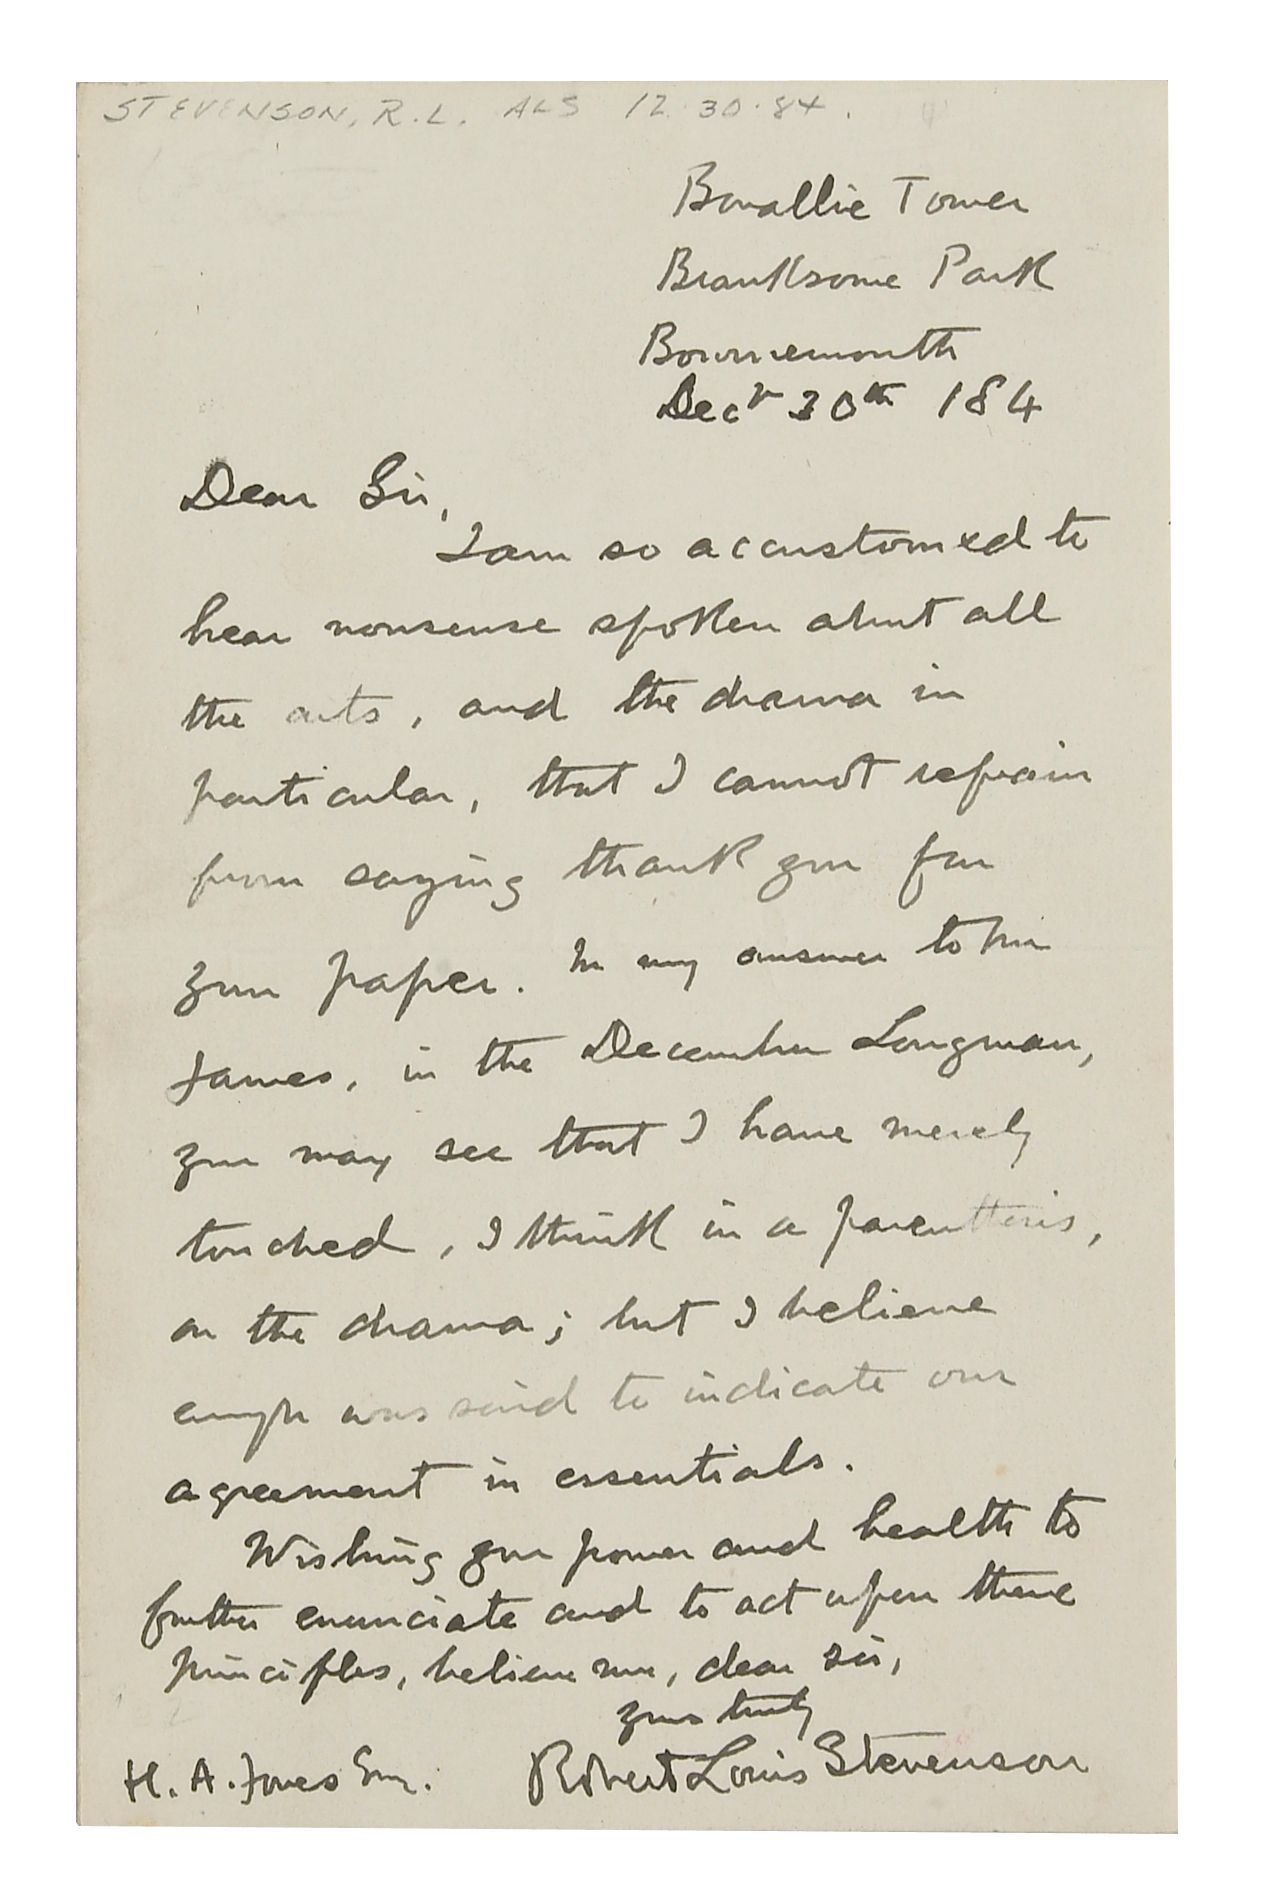 STEVENSON, R.L. ALS 12.30.84.
Bonallie Tower
Branksome Park
Bournemouth
Decr 30th 184
Dear Sir,
I am so accustomed to
hear nonsense spoken about all
the arts, and the drama in
particular, that I cannot refrain
from saying thank you for
your paper. In my answer to Mr
James, in the December Longman,
you may see that I have merely
touched, I think in a parenthesis,
on the drama; but I believe
enough was said to indicate our
agreement in essentials.
Wishing you power and health to
further enunciate and to act upon these
principles, believe me, dear sir,
yours truly
Robert Louis Stevenson
H. A. Jones Esq.